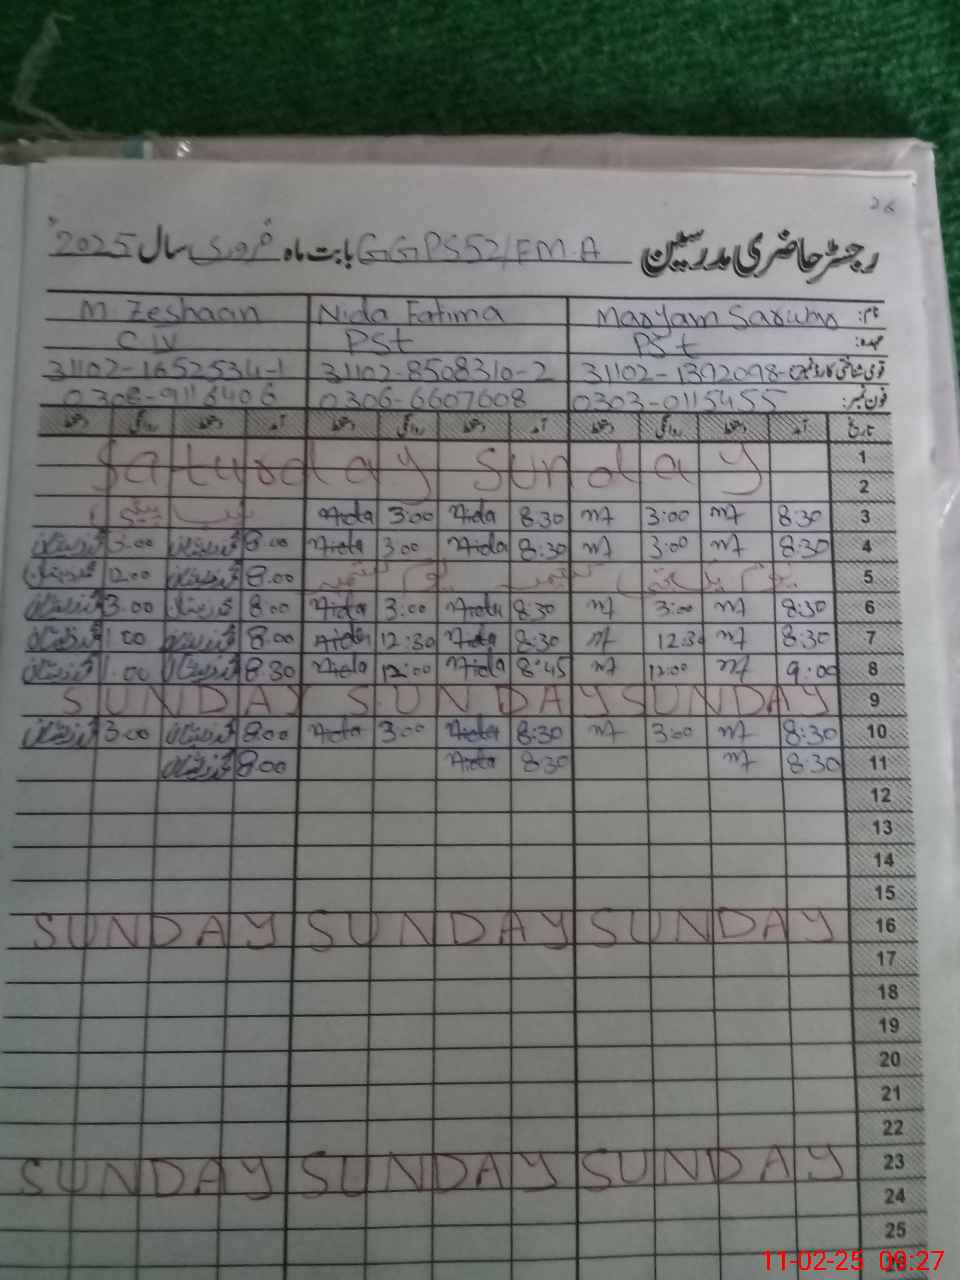 26
رجسٹر حاضری مدرسین GGPS52/FM.A بابت ماہ فروری سال 2025
نام: Maryam Nida Fatima M Zeshaan
عہدہ: PSt PSt CIV
قومی شناختی کارڈ نمبر 31102-8508310-2 31102-1652534-1
فون نمبر: 0303-0115455 0306-6607608 0308-9116406
تاریخ آمد دستخط روانگی دستخط آمد دستخط روانگی دستخط آمد دستخط روانگی دستخط
1 Saturday
2 Sunday
3 8:30 m 3:00 m 8:30 Nida 3:00 Nida
4 8:30 m 3:00 m 8:30 Nida 3:00 Nida 8:00 3:00
5 یوم یکجہتی کشمیر 8.00 12.00
6 8:30 m 3:00 m 8:30 Nida 3:00 Nida 8:00 3.00
7 8:30 m 12:30 m 8:30 Nida 12:30 Nida 8:00
8 9:00 m 12:00 m 8:45 Nida 12:00 Nida 8.30 1.00
9 SUNDAY SUNDAY SUNDAY
10 8:30 m 3:00 m 8:30 Nida 3:00 Nida 8:00 3:00
11 8:30 m 8:30 Nida 8:00
12
13
14
15
16 SUNDAY SUNDAY SUNDAY
17
18
19
20
21
22
23 SUNDAY SUNDAY SUNDAY
24
25
11-02-25 09:27